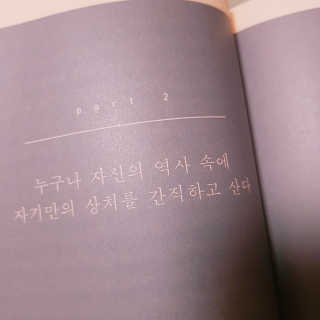 part 2
누구나 자신의 역사 속에
자기만의 상처를 간직하고 산다